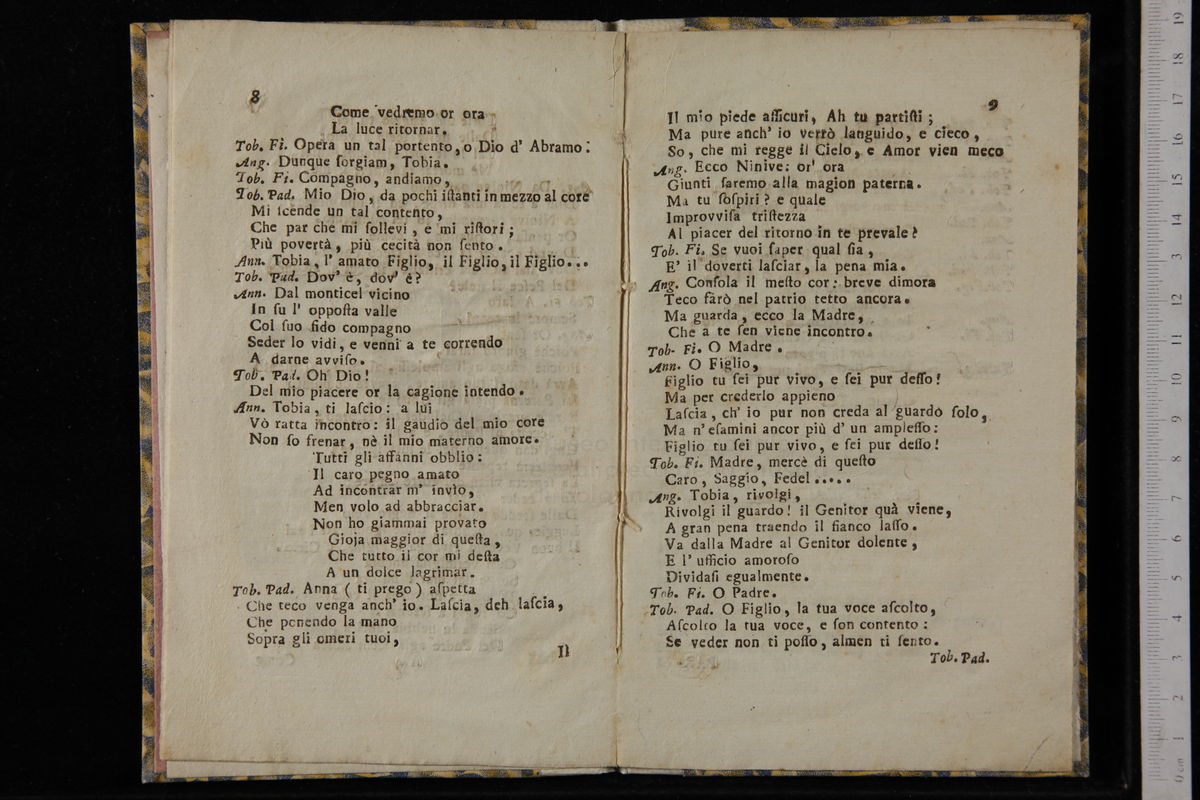 8
Come vedremo or ora
La luce ritornar.
Tob. Fi. Opera un tal portento, o Dio d' Abramo.
Ang. Dunque ſorgiam, Tobia.
Tob. Fi. Compagno, andiamo,
Tob. Pad. Mio Dio, da pochi iſtanti in mezzo al core
Mi ſcende un tal contento,
Che par che mi ſollevi, e mi riſtori;
Più povertà, più cecità non ſento.
Ann. Tobia, l' amato Figlio, il Figlio, il Figlio...
Tob. Pad. Dov' è, dov' è?
Ann. Dal monticel vicino
In ſu l' oppoſta valle
Col ſuo fido compagno
Seder lo vidi, e venni a te correndo
A darne avviſo.
Tob. Pad. Oh Dio!
Del mio piacere or la cagione intendo.
Ann. Tobia, ti laſcio: a lui
Vò ratta incontro: il gaudio del mio core
Non ſo frenar, nè il mio materno amore.
Tutti gli affanni obblio:
Il caro pegno amato
Ad incontrar m' invìo,
Men volo ad abbracciar.
Non ho giammai provato
Gioja maggior di queſta,
Che tutto il cor mi deſta
A un dolce lagrimar.
Tob. Pad. Anna ( ti prego ) aſpetta
Che teco venga anch' io. Laſcia, deh laſcia,
Che ponendo la mano
Sopra gli omeri tuoi,
Il
9
Il mio piede aſſicuri, Ah tu partiſti;
Ma pure anch' io verrò languido, e cieco,
So, che mi regge il Cielo, e Amor vien meco
Ang. Ecco Ninive: or' ora
Giunti ſaremo alla magion paterna.
Ma tu ſoſpiri? e quale
Improvviſa triſtezza
Al piacer del ritorno in te prevale?
Tob. Fi. Se vuoi ſaper qual ſia,
E' il doverti laſciar, la pena mia.
Ang. Conſola il meſto cor: breve dimora
Teco farò nel patrio tetto ancora.
Ma guarda, ecco la Madre,
Che a te ſen viene incontro.
Tob. Fi. O Madre.
Ann. O Figlio,
Figlio tu ſei pur vivo, e ſei pur deſſo!
Ma per crederlo appieno
Laſcia, ch' io pur non creda al guardo ſolo,
Ma n' eſamini ancor più d' un ampleſſo:
Figlio tu ſei pur vivo, e ſei pur deſſo!
Tob. Fi. Madre, mercè di queſto
Caro, Saggio, Fedel.....
Ang. Tobia, rivolgi,
Rivolgi il guardo! il Genitor quà viene,
A gran pena traendo il fianco laſſo.
Va dalla Madre al Genitor dolente,
E l' ufficio amoroſo
Dividaſi egualmente.
Tob. Fi. O Padre.
Tob. Pad. O Figlio, la tua voce aſcolto,
Aſcolto la tua voce, e ſon contento:
Se veder non ti poſſo, almen ti ſento.
Tob. Pad.